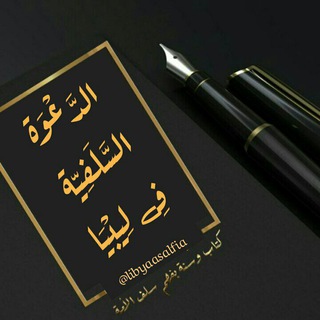 الدَّعْوَة
السَّلَفِيَّة
فِي لِيبْيَا
@libyaasalfia
كتاب وسنة بفهم سلف الأمة